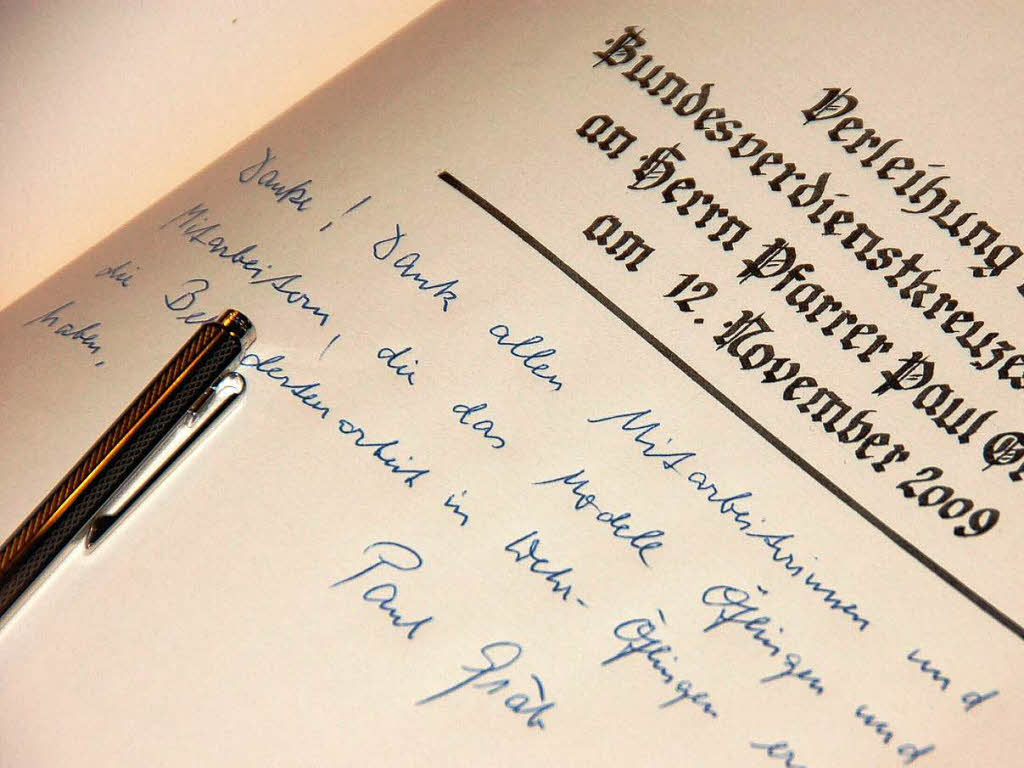 Verleihung
Bundesverdienstkreuzes
an Herrn Pfarrer Paul Gr
am 12. November 2009
Danke! Dank allen Mitarbeiterinnen und
Mitarbeitern, die das Modell Öflingen und
die Be dertenarbeit in Wehr-Öflingen er
haben,
Paul Gräb